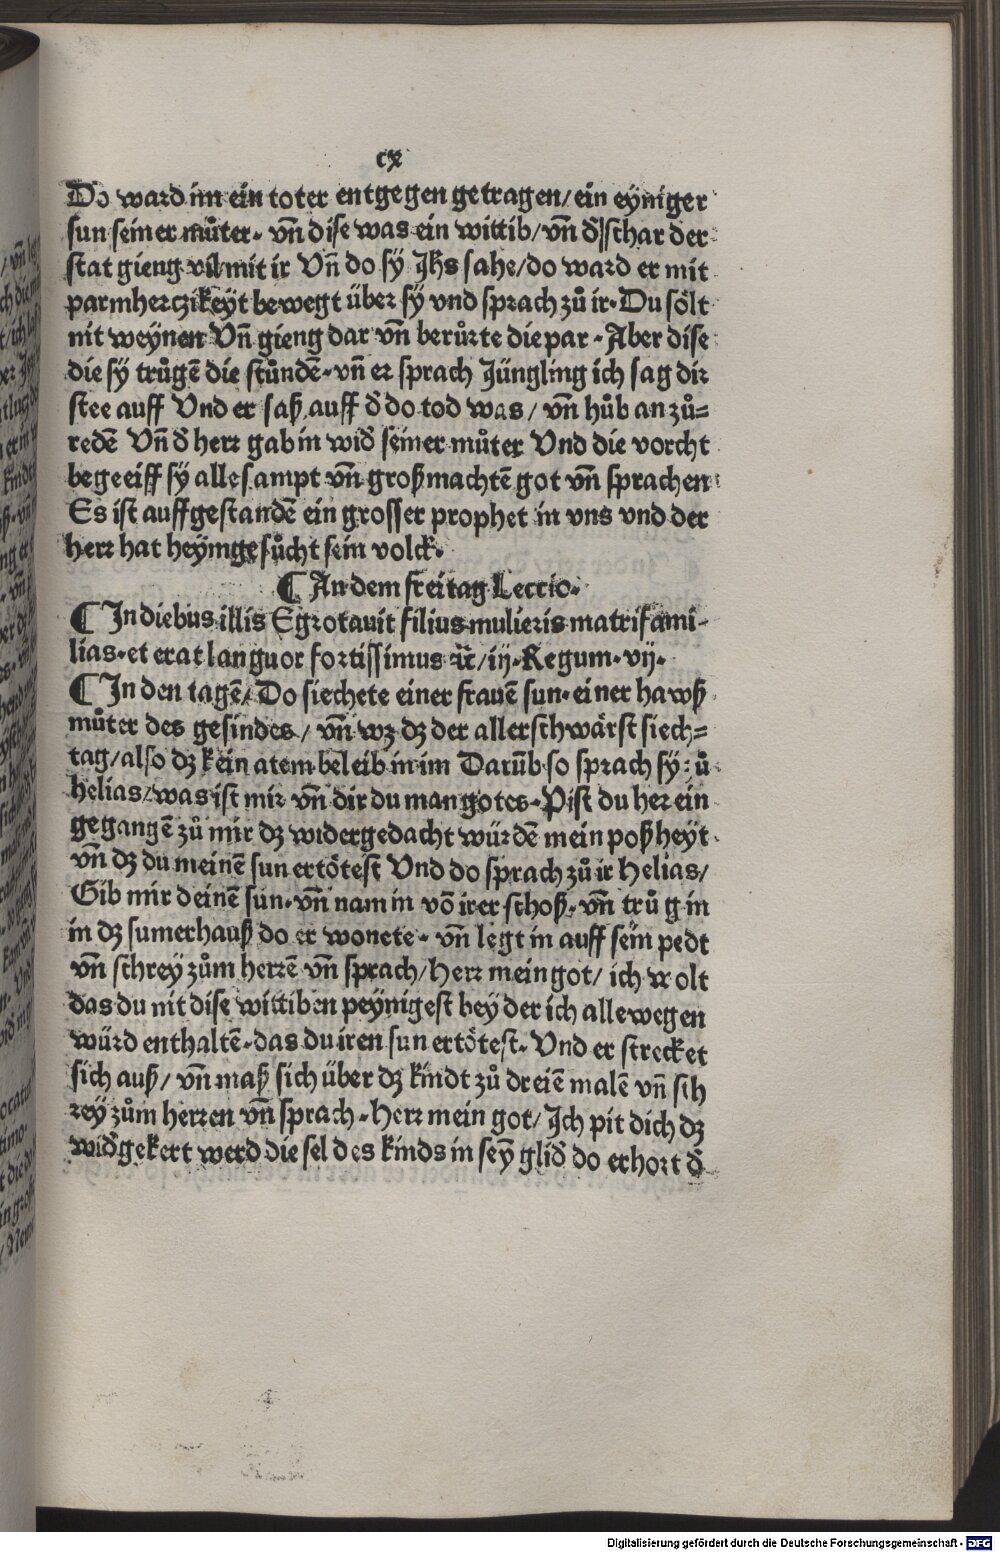 cx
Do ward im ein toter entgegen getragen/ ein eyniger
sun seiner můter. vñ dise was ein wittib/ vñ d̄ schar der
stat gieng vil mit ir Vñ do sÿ Jhs sahe/ do ward er mit
parmhertzikeÿt bewegt über sÿ vnd sprach zů ir. Du sölt
nit weÿnen Vñ gieng dar vñ berůrte die par. Aber dise
die sÿ trůgē die stůndē. vñ er sprach Jüngling ich sag dir
stee auff Vnd er saß auff d̄ do tod was/ vñ hůb an zů=
redē Vñ d̄ herr gab in wid̄ seiner můter Vnd die vorcht
begeeiff sÿ alle sampt vñ großmachtē got vñ sprachen
Es ist auffgestandē ein grosser prophet in vns vnd der
herr hat heÿmgesůcht sein volck.
¶ An dem freitag Leccio.
¶ In diebus illis Egrotauit filius mulieris matrifami-
lias. et erat languor fortissimus ꝛc̄/ iij. Regum. vij.
¶ In den tagē/ Do siechete einer frauē sun. einer hawß
můter des gesindes/ vñ wz dz der allerschwärst siech=
tag/ also dz kein atem beleib in im Darūb so sprach sÿ: ů
helias/ was ist mir vñ dir du man gotes. Pist du her ein
gegangē zů mir dz widergedacht würdē mein poßheÿt.
vñ dz du meinē sun ertötest Vnd do sprach zů ir Helias/
Gib mir deinē sun. vñ nam in vō irer schoß. vñ trůg in
in dz sumerhauß do er wonete. vñ legt in auff sein pedt
vñ schrey zům herrē vñ sprach/ Herr mein got/ ich wolt
das du nit dise wittiben peÿnigest beÿ der ich allewegen
würd enthaltē. das du iren sun ertötest. Vnd er strecket
sich auß/ vñ maß sich über dz kindt zů dreiē malē vñ sch
rey zům herren vñ sprach. Herr mein got/ Ich pit dich dz
wid̄gekert werd die sel des kinds in seȳ glid̄ do erhort d̄
Digitalisierung gefördert durch die Deutsche Forschungsgemeinschaft - DFG